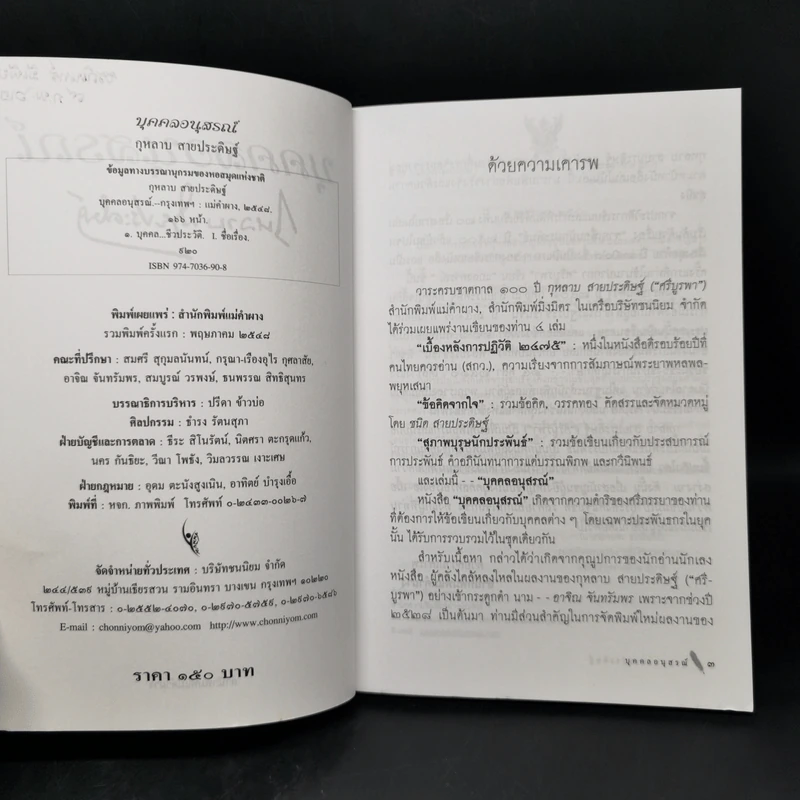 บุคคลอนุสรณ์
กุหลาบ สายประดิษฐ์
ข้อมูลทางบรรณานุกรมของหอสมุดแห่งชาติ
กุหลาบ สายประดิษฐ์
บุคคลอนุสรณ์.--กรุงเทพฯ : แม่คำผาง, ๒๕๔๘.
๑๖๖ หน้า.
๑. บุคคล...ชีวประวัติ. I. ชื่อเรื่อง.
๙๒๐
ISBN 974-7036-90-8
พิมพ์เผยแพร่ : สำนักพิมพ์แม่คำผาง
รวมพิมพ์ครั้งแรก : พฤษภาคม ๒๕๔๘
คณะที่ปรึกษา : สมศรี สุกุมลนันทน์, กรุณา-เรืองอุไร กุศลาสัย,
อาจิณ จันทรัมพร, สมบูรณ์ วรพงษ์, ธนพรรณ สิทธิสุนทร
บรรณาธิการบริหาร : ปรีดา ข้าวบ่อ
ศิลปกรรม : ธำรง รัตนสุภา
ฝ่ายบัญชีและการตลาด : ธีระ สิโนรัตน์, นิตศรา ตะกรุดแก้ว,
นคร กันธิยะ, วีณา โพธัง, วิมลวรรณ เงาะเศษ
ฝ่ายกฎหมาย : อุดม ตะนังสูงเนิน, อาทิตย์ บำรุงเอื้อ
พิมพ์ที่ : หจก. ภาพพิมพ์ โทรศัพท์ ๐-๒๔๓๓-๐๐๒๖-๗
จัดจำหน่ายทั่วประเทศ : บริษัทชนนิยม จำกัด
๒๔๔/๕๓๙ หมู่บ้านเธียรสวน รามอินทรา บางเขน กรุงเทพฯ ๑๐๒๒๐
โทรศัพท์-โทรสาร : ๐-๒๕๕๒-๔๐๗๐, ๐-๒๙๗๐-๕๗๕๙, ๐-๒๙๗๐-๖๕๔๖
E-mail : chonniyom@yahoo.com http://www.chonniyom.com
ราคา ๑๕๐ บาท
ด้วยความเคารพ
วาระครบชาตกาล ๑๐๐ ปี กุหลาบ สายประดิษฐ์ ("ศรีบูรพา")
สำนักพิมพ์แม่คำผาง, สำนักพิมพ์มิ่งมิตร ในเครือบริษัทชนนิยม จำกัด
ได้ร่วมเผยแพร่งานเขียนของท่าน ๔ เล่ม
"เบื้องหลังการปฏิวัติ ๒๔๗๕" : หนึ่งในหนังสือดีรอบร้อยปีที่
คนไทยควรอ่าน (สกว.), ความเรียงจากการสัมภาษณ์พระยาพหลพล-
พยุหเสนา
"ข้อคิดจากใจ" : รวมข้อคิด, วรรคทอง คัดสรรและจัดหมวดหมู่
โดย ชนิด สายประดิษฐ์
"สุภาพบุรุษนักประพันธ์" : รวมข้อเขียนเกี่ยวกับประสบการณ์
การประพันธ์ คำอภินันทนาการแด่บรรณพิภพ และกวีนิพนธ์
และเล่มนี้ - - "บุคคลอนุสรณ์"
หนังสือ "บุคคลอนุสรณ์" เกิดจากความดำริของศรีภรรยาของท่าน
ที่ต้องการให้ข้อเขียนเกี่ยวกับบุคคลต่าง ๆ โดยเฉพาะประพันธกรในยุค
นั้น ได้รับการรวบรวมไว้ในชุดเดียวกัน
สำหรับเนื้อหา กล่าวได้ว่าเกิดจากคุณูปการของนักอ่านนักเลง
หนังสือ ผู้คลั่งไคล้หลงใหลในผลงานของกุหลาบ สายประดิษฐ์ ("ศรี-
บูรพา") อย่างเข้ากระดูกดำ นาม - - อาจิณ จันทรัมพร เพราะจากช่วงปี
๒๕๒๘ เป็นต้นมา ท่านมีส่วนสำคัญในการจัดพิมพ์ใหม่ผลงานของ
บุคคลอนุสรณ์ ๓